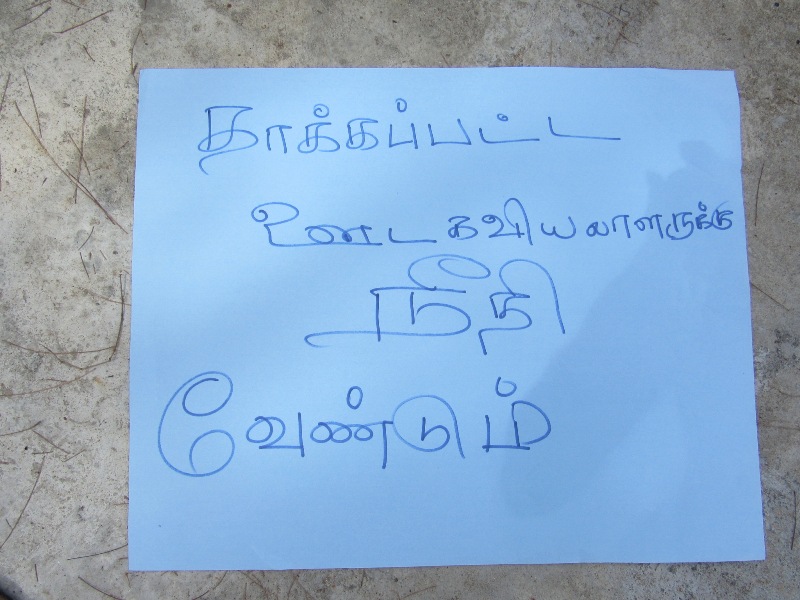 தாக்கப்பட்ட
ஊடகவியலாளருக்கு
நீதி
வேண்டும்